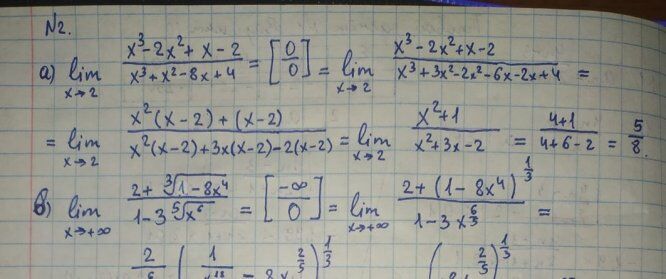 №2.
а) lim x→2 (x³-2x²+x-2)/(x³+x²-8x+4) = [0/0] = lim x→2 (x³-2x²+x-2)/(x³+3x²-2x²-6x-2x+4) =
= lim x→2 (x²(x-2)+(x-2))/(x²(x-2)+3x(x-2)-2(x-2)) = lim x→2 (x²+1)/(x²+3x-2) = (4+1)/(4+6-2) = 5/8.
в) lim x→+∞ (2+∛(1-8x⁴))/(1-3⁵√(x⁶)) = [-∞/0] = lim x→+∞ (2+(1-8x⁴)^(1/3))/(1-3x^(6/3)) =